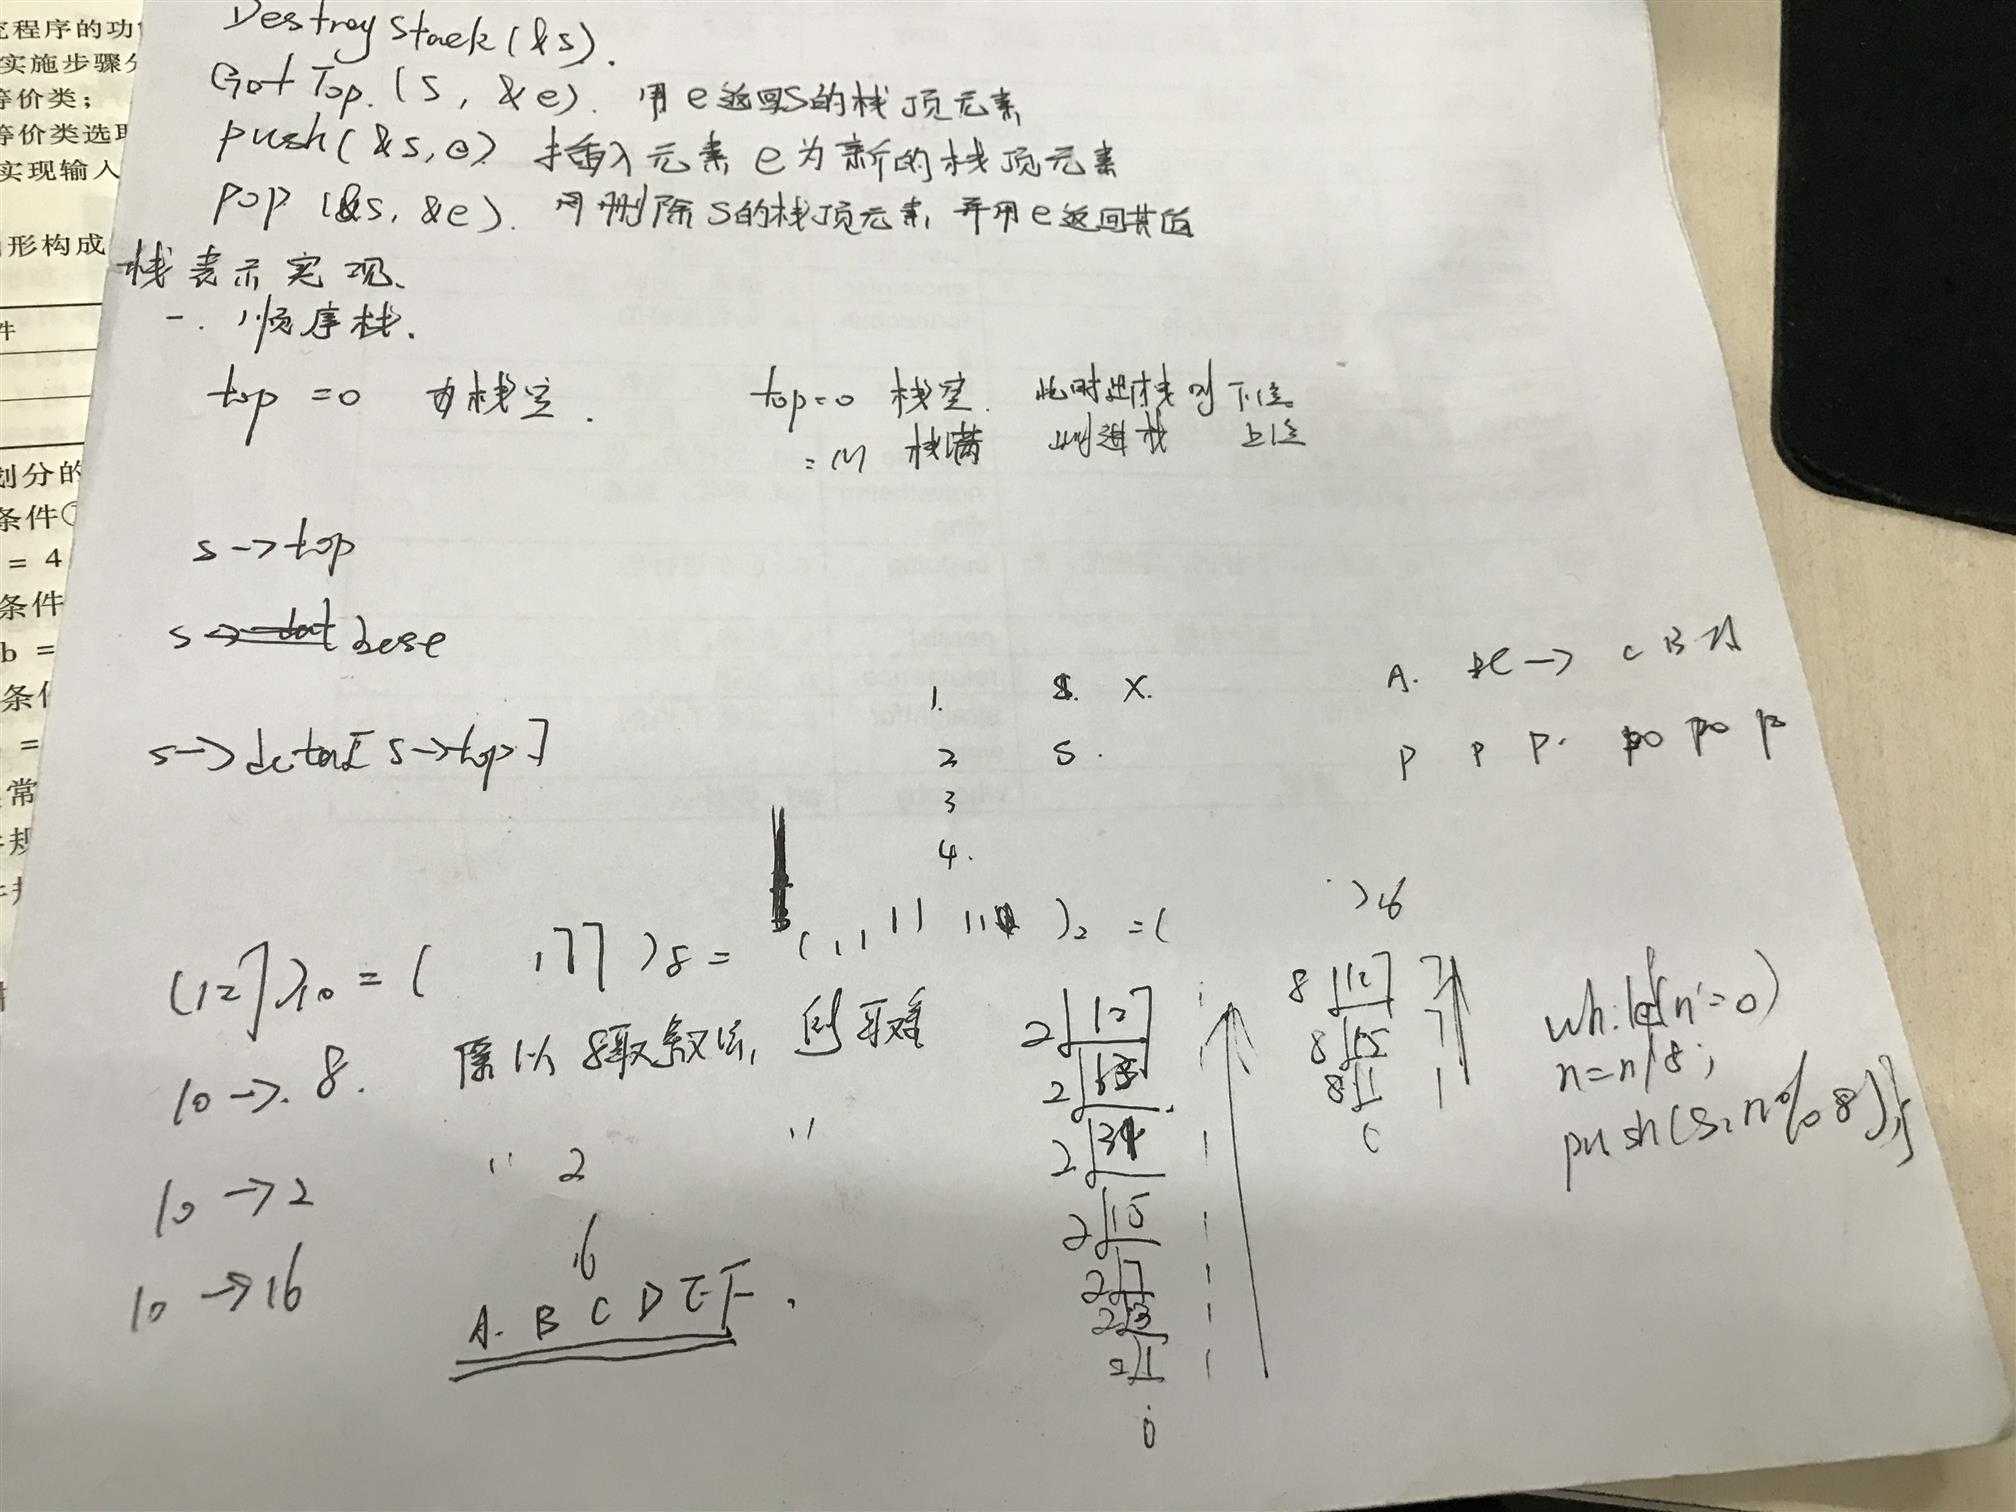 究程序的功
实施步骤
等价类；
等价类选取
实现输入
形构成
件
划分的
条件①
= 4
条件
b =
条件
=
常
规
DestroyStack(&s).
GetTop.(s, &e). 用e返回S的栈顶元素
push(&s,e) 插入元素e为新的栈顶元素
pop(&s, &e). 删除S的栈顶元素, 并用e返回其值
栈表示实现.
一. 顺序栈.
top = 0 为栈空.
top=0 栈空. 此时出栈则下溢
=M 栈满 此时进栈 上溢
s->top
s-> base
s->data[s->top]
1. S. X.
2 S.
3
4.
A. BC -> C B A
P P P. po po p
(127)10 = ( 177 )8 = (111 11 11 )2 = ( )16
10 -> 8. 除以8取余法, 倒取余
10 -> 2 " 2 "
10 -> 16 16
A. B C D E F.
2 127 1
2 63
2 31 1
2 15 1
2 7 1
2 3 1
2 1 1
0
8 127 7
8 15 7
8 1 1
0
while(n!=0)
n=n/8;
push(S, n%8);}